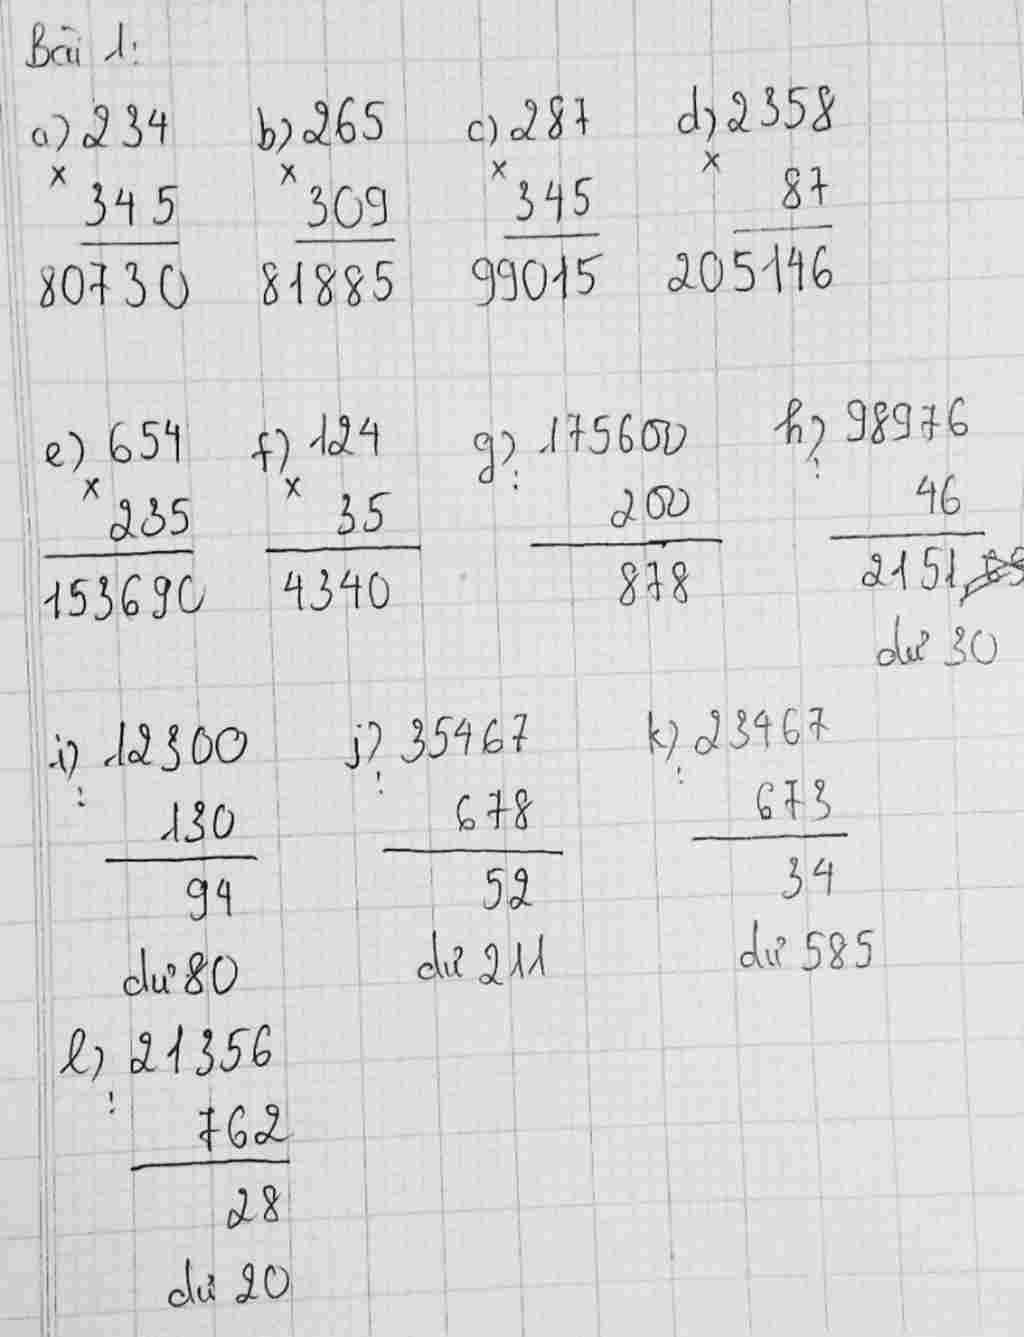 Bài 1:
a) 234 b) 265 c) 287 d) 2358
x x x x
345 309 345 87
80730 81885 99015 205146
e) 654 f) 124 g) 175600 h) 98976
x x : :
235 35 200 46
153690 4340 878 2151
dư 30
i) 12300 j) 35467 k) 23467
: : :
130 678 673
94 52 34
dư 80 dư 211 dư 585
l) 21356
:
762
28
dư 20